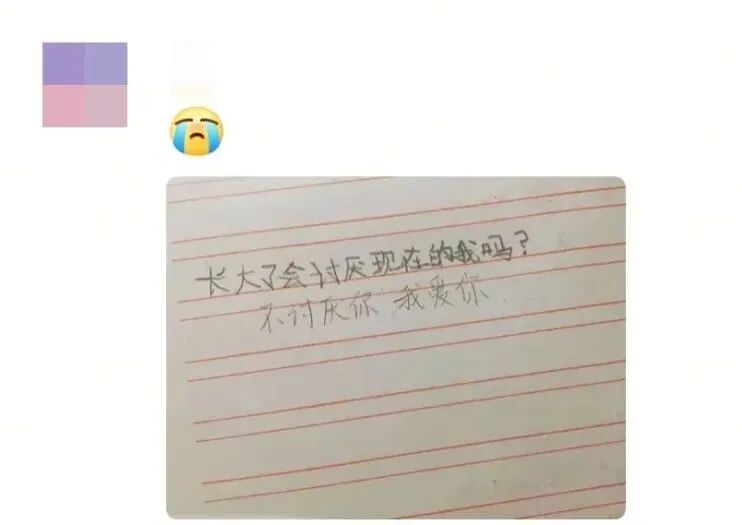 长大了会讨厌现在的我吗？
不讨厌你，我爱你